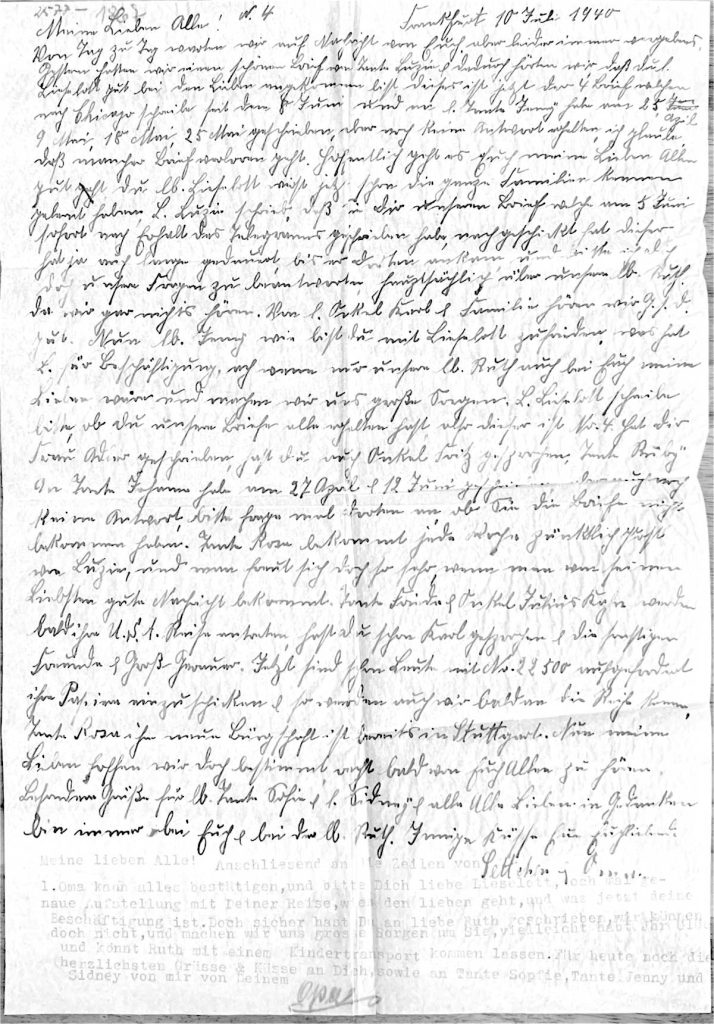 Meine Lieben Alle! N. 4 Frankfurt 10 Juli 1940
Von Tag zu Tag warten wir auf Nachricht von Euch aber leider immer vergebens.
Gestern hatten wir einen schönen Brief von Tante Luzie & dadurch hörten wir daß Du l.
Lieselott gut bei den Lieben angekommen bist dieses ist jetzt der 4 Brief welchen
nach Chicago schreibe seit dem 5 Juni und an l. Tante Jenny habe am 25 April
9 Mai, 18 Mai 25 Mai geschrieben, aber noch keine Antwort erhalten, ich glaube
daß mancher Brief verloren geht. Hoffentlich geht es Euch meine Lieben Allen
gut Du lb. Lieselott wirst jetzt schon die ganze Familie kennen
gelernt haben L. Luzie schrieb, daß sie Dir unseren Brief welche am 5 Juni
sofort nach Erhalt des Telegramms geschrieben habe nachgeschickt hat dieser
hat ja auch lange gedauert, bis er dorten ankam und bitte
doch unsere Fragen zu beantworten hauptsächlich über unsere lb. Ruth
da wir gar nichts hören. Von l. Onkel Karl & Familie hören wir G. s. d.
gut. Nun lb. Jenny wie bist Du mit Lieselott zufrieden, was hat
L. für Beschäftigung, ach wenn nur unsere lb. Ruth auch bei Euch meine
Lieben wäre und machen wir uns große Sorgen. L. Lieselott schreibe
bitte, ob Du unsere Briefe alle erhalten hast, also dieser ist No. 4. Hat Dir
Frau Adler geschrieben, hast Du auch Onkel Fritz gesprochen, Tante
An Tante Johanna habe am 27 April & 12 Juni geschrieben aber auch noch
keine Antwort, bitte frage mal dorten an ob Sie die Briefe nicht
bekommen haben. Tante Rosa bekommt jede Woche pünktlich Post
von Luzie, und man freut sich doch so sehr, wenn man von seinen
Liebsten gute Nachricht bekommt. Tante Frieda & Onkel Julius Kahn werden
bald ihre U.S.A. Reise antreten, hast Du schon Karl gesprochen & die sonstigen
Freunde & Groß Gerauer. Jetzt sind schon Leute mit No. 22500 aufgefordert
ihre Papiere einzuschicken & so werden auch wir bald an die Reihe kommen,
Tante Rosa ihre neue Bürgschaft ist bereits in Stuttgart. Nun meine
Lieben hoffen wir doch bestimmt recht bald von Euch Allen zu hören.
Besondere Grüße für lb. Tante Sofie, & l. Sidney & alle Alle Lieben in Gedanken
bin immer bei Euch & bei der lb. Ruth. Innige Küsse Eure Euch liebende
Oma.
Meine lieben Alle! Anschliesend an die Zeilen von
l.Oma kann alles bestätigen,und bitte Dich liebe Lieselott,noch mal ge-
naue Aufstellung mit Deiner Reise,wie es den lieben geht,und was jetzt deine
Beschäftigung ist.Doch sicher habt Du an liebe Ruth geschrieben,wir können
doch nicht,und machen wir uns grosse Sorgen um Sie,vielleicht habt Ihr Glück
und könnt Ruth mit einem Kindertransport kommen lassen.Für heute noch die
herzlichsten Grüsse & Küsse an Dich,sowie an Tante Sopfie,Tante Jenny und
Sidney von mir von Deinem
Opa